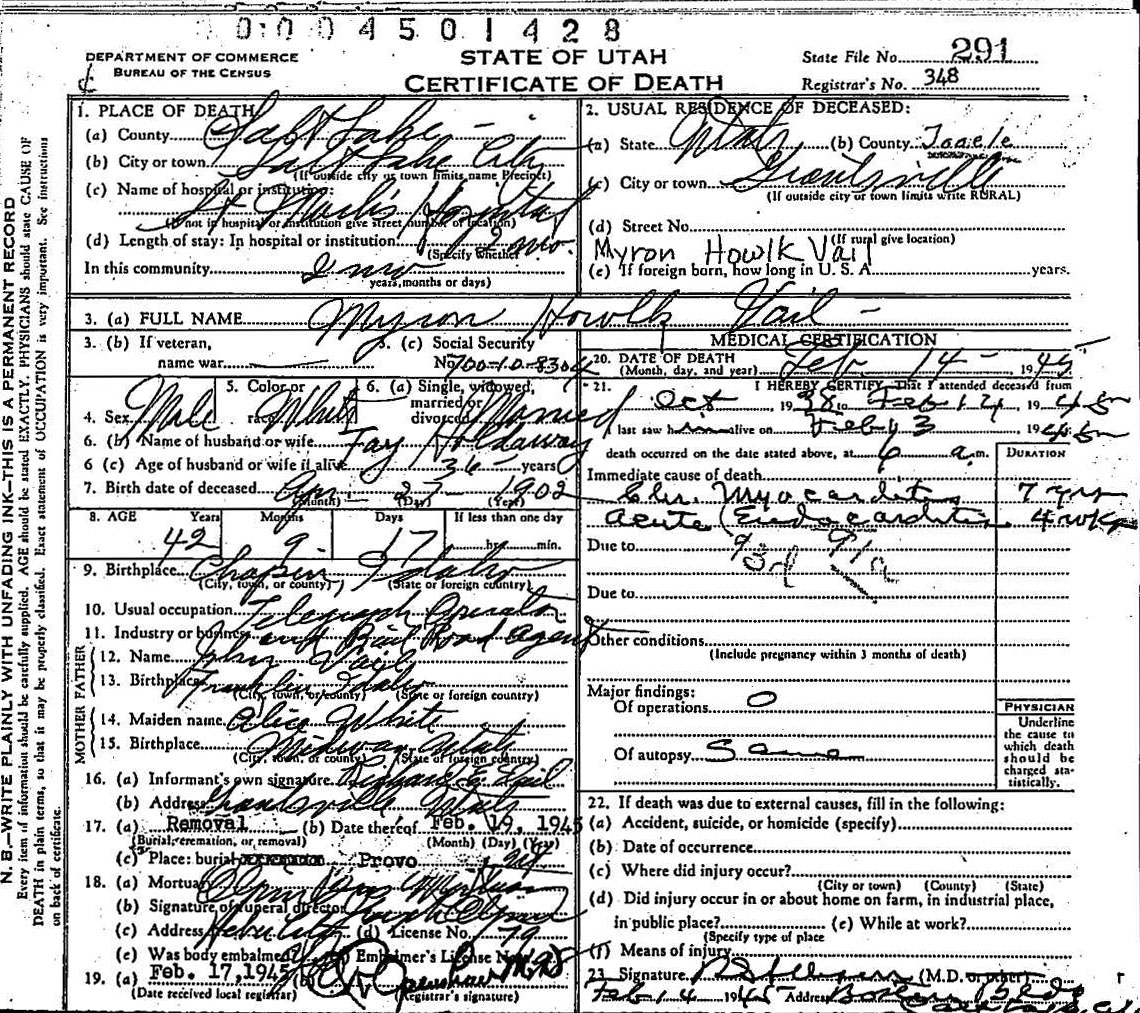 0004501428
DEPARTMENT OF COMMERCE
BUREAU OF THE CENSUS
STATE OF UTAH
CERTIFICATE OF DEATH
State File No. 291
Registrar's No. 348
N. B.—WRITE PLAINLY WITH UNFADING INK—THIS IS A PERMANENT RECORD
Every item of information should be carefully supplied. AGE should be stated EXACTLY. PHYSICIANS should state CAUSE OF
DEATH in plain terms, so that it may be properly classified. Exact statement of OCCUPATION is very important. See instructions
on back of certificate.
1. PLACE OF DEATH
(a) County Salt Lake
(b) City or town Salt Lake City
(If outside city or town limits name Precinct)
(c) Name of hospital or institution:
St Marks Hospital
(If not in hospital or institution give street number or location)
(d) Length of stay: In hospital or institution 2 mo.
(Specify whether
In this community 2 mo
years, months or days)
2. USUAL RESIDENCE OF DECEASED:
(a) State Utah (b) County Tooele
(c) City or town Grantsville
(If outside city or town limits write RURAL)
(d) Street No.
(If rural give location)
Myron Howlk Vail
(e) If foreign born, how long in U. S. A. years.
3. (a) FULL NAME Myron Howlk Vail
3. (b) If veteran,
name war
3. (c) Social Security
No. 700-10-8304
4. Sex Male
5. Color or
race White
6. (a) Single, widowed,
married or
divorced Married
6. (b) Name of husband or wife Fay Holdaway
6 (c) Age of husband or wife if alive 36 years
7. Birth date of deceased Apr. 27 1902
(Month) (Day) (Year)
8. AGE Years Months Days If less than one day
42 9 17 hr. min.
9. Birthplace Chapin, Idaho
(City, town, or county) (State or foreign country)
10. Usual occupation Telegraph Operator
11. Industry or business and Rail Road Agent
FATHER
12. Name John Vail
13. Birthplace Franklin Idaho
(City, town, or county) (State or foreign country)
MOTHER
14. Maiden name Alice White
15. Birthplace Midway, Utah
(City, town, or county) (State of foreign country)
16. (a) Informant's own signature Richard E. Vail
(b) Address Grantsville Utah
17. (a) Removal (b) Date thereof Feb. 19, 1945
(Burial, cremation, or removal) (Month) (Day) (Year)
(c) Place: burial Provo
18. (a) Mortuary Olpin
(b) Signature of funeral director Olpin
(c) Address Heber City (d) License No. 79
(e) Was body embalmed? Embalmer's License No.
19. (a) Feb. 17, 1945 (b)
(Date received local registrar) (Registrar's signature)
MEDICAL CERTIFICATION
20. DATE OF DEATH Feb 14 1945
(Month, day, and year)
21. I HEREBY CERTIFY That I attended deceased from
Oct, 1938 to Feb 14, 1945
last saw him alive on Feb 13 1945
death occurred on the date stated above, at 6 a.m.
DURATION
Immediate cause of death
Chr. Myocarditis 7 yrs
Acute Endocarditis 4 wks
Due to
93d 91a
Due to
Other conditions
(Include pregnancy within 3 months of death)
Major findings:
Of operations 0
Of autopsy Same
PHYSICIAN
Underline
the cause to
which death
should be
charged sta-
tistically.
22. If death was due to external causes, fill in the following:
(a) Accident, suicide, or homicide (specify)
(b) Date of occurrence
(c) Where did injury occur?
(City or town) (County) (State)
(d) Did injury occur in or about home on farm, in industrial place,
in public place? (e) While at work?
(Specify type of place
(f) Means of injury
23. Signature (M.D. or other)
Feb 14 1945 Address Boston Bldg
Salt Lake City